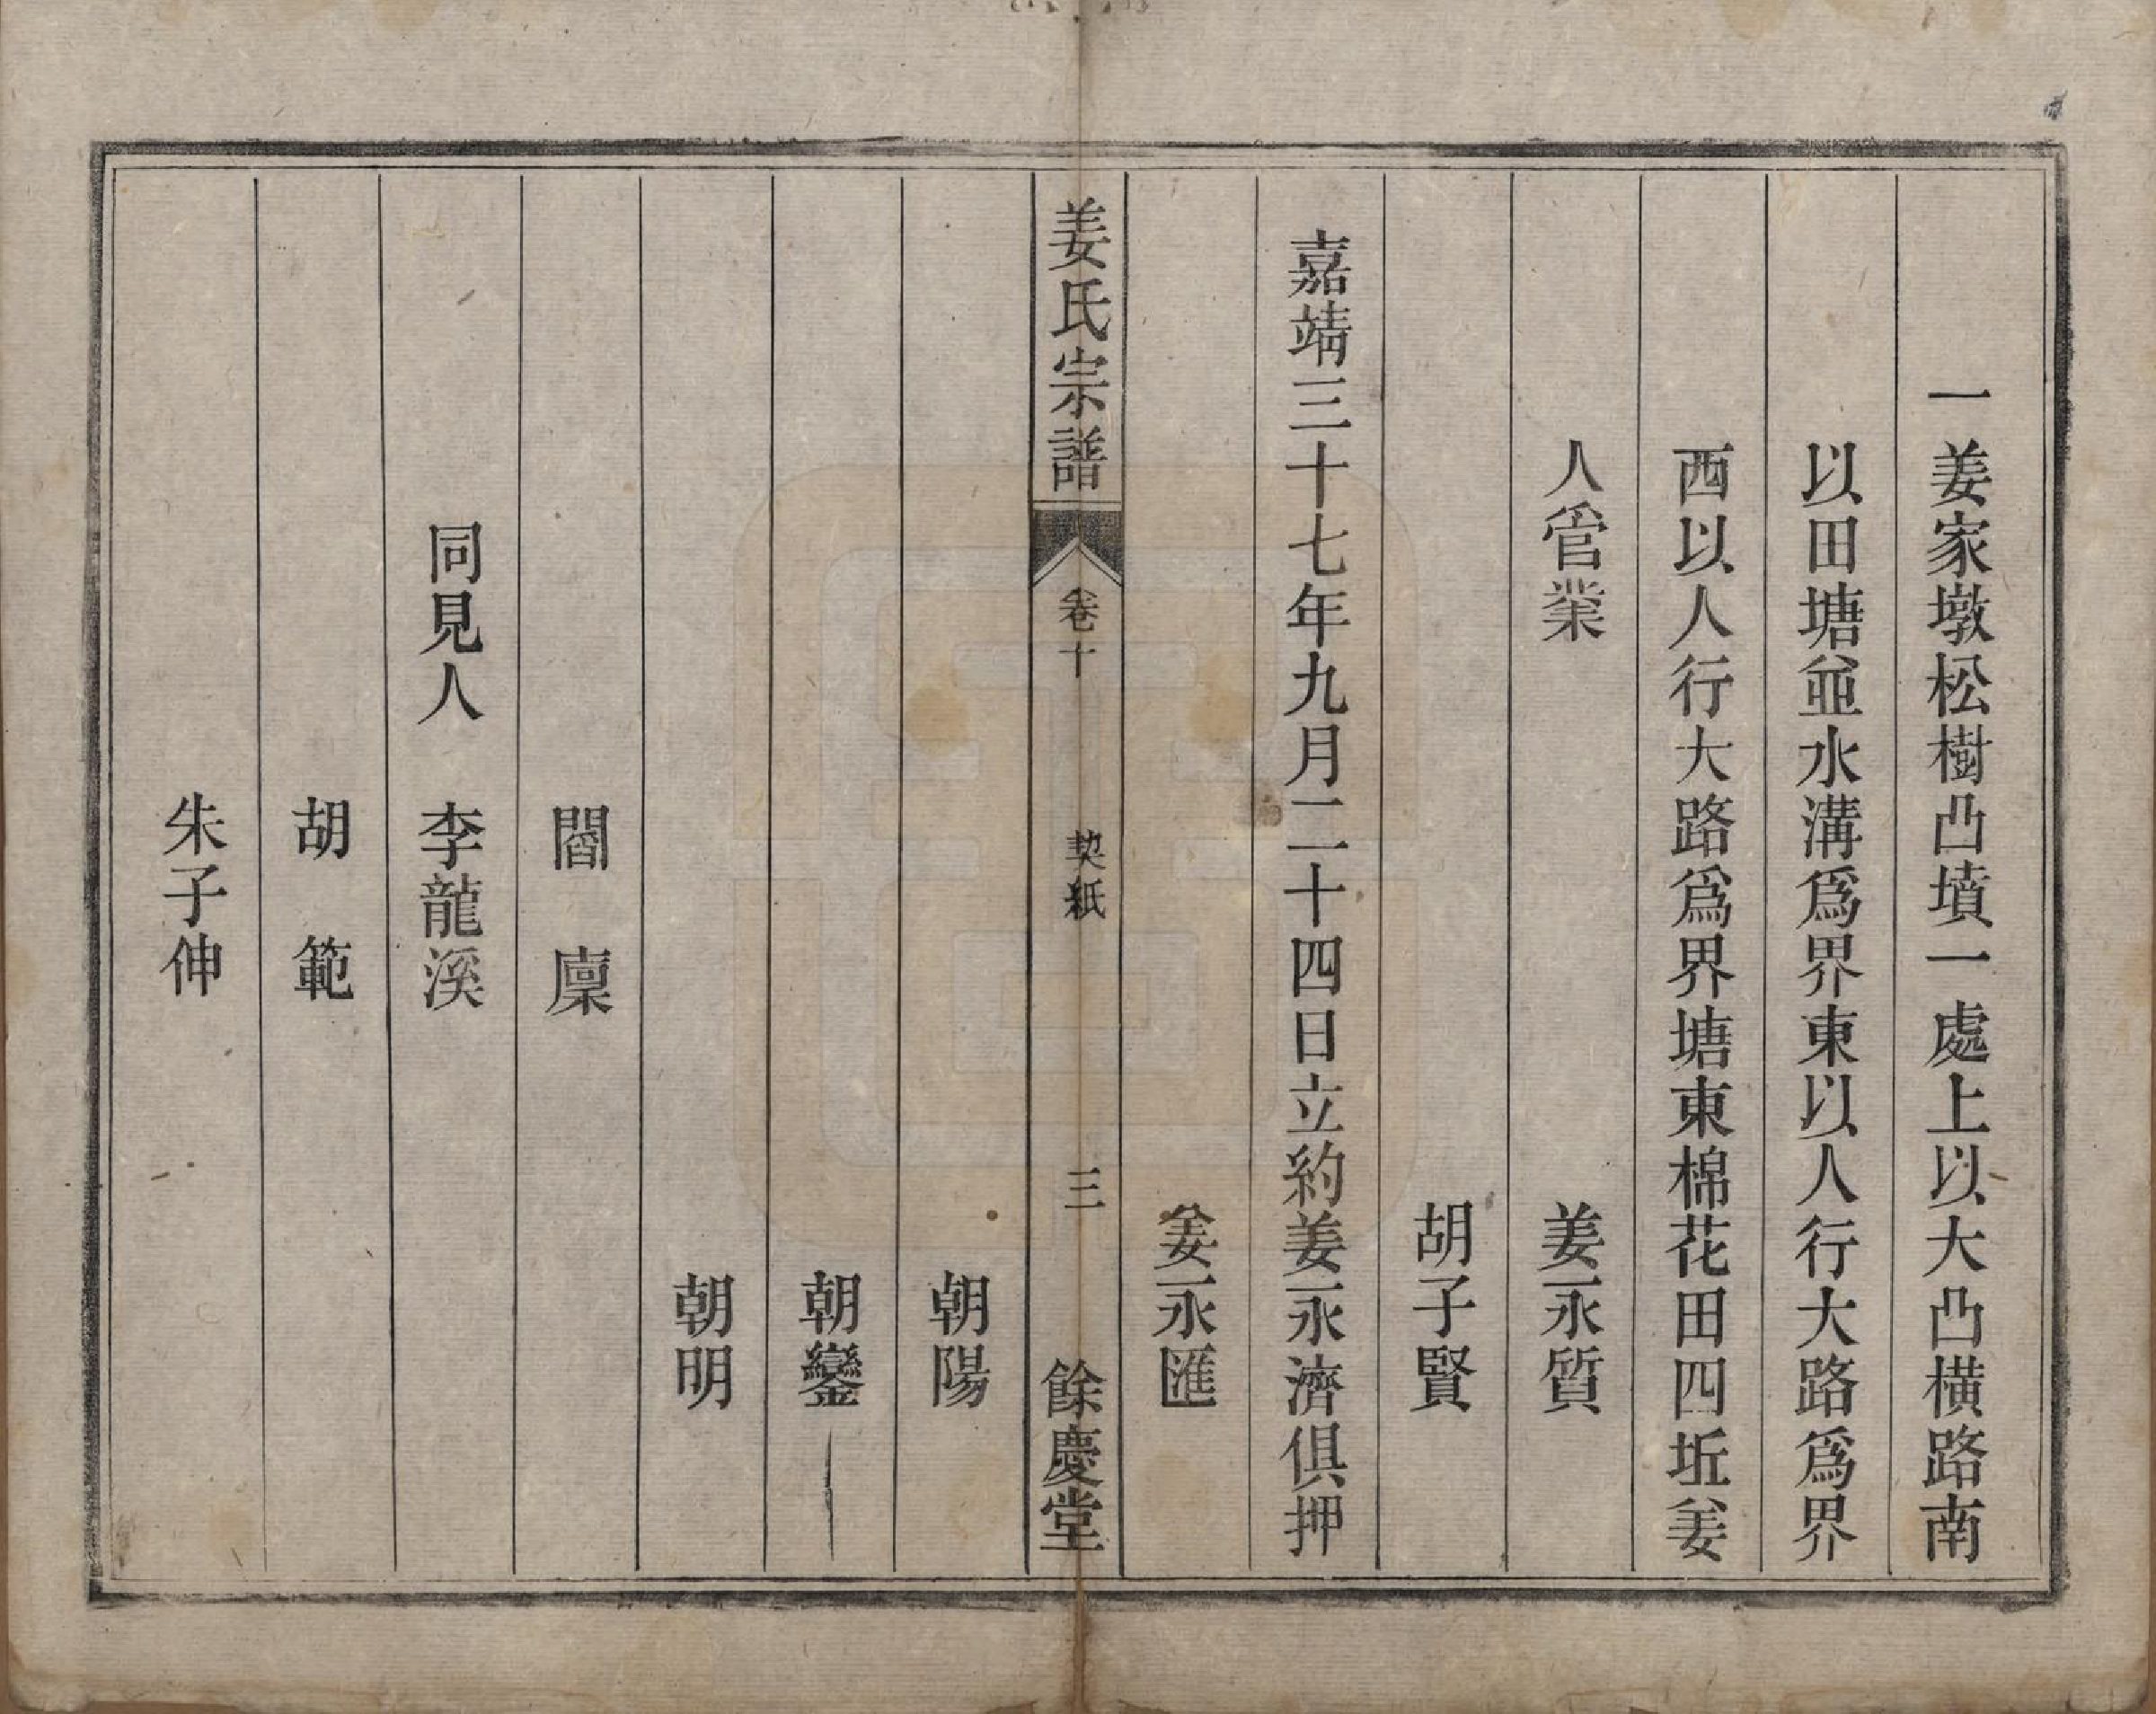 一姜家墩松樹凸墳一處上以大凸橫路南
以田塘並水溝爲界東以人行大路爲界
西以人行大路爲界塘東棉花田四坵姜
人管業
姜永質
胡子賢
嘉靖三十七年九月二十四日立約姜永濟俱押
姜永匯
姜氏宗譜 卷十 契紙 三 餘慶堂
朝陽
朝鑾
朝明
閻 廩
同見人 李龍溪
胡 範
朱子伸